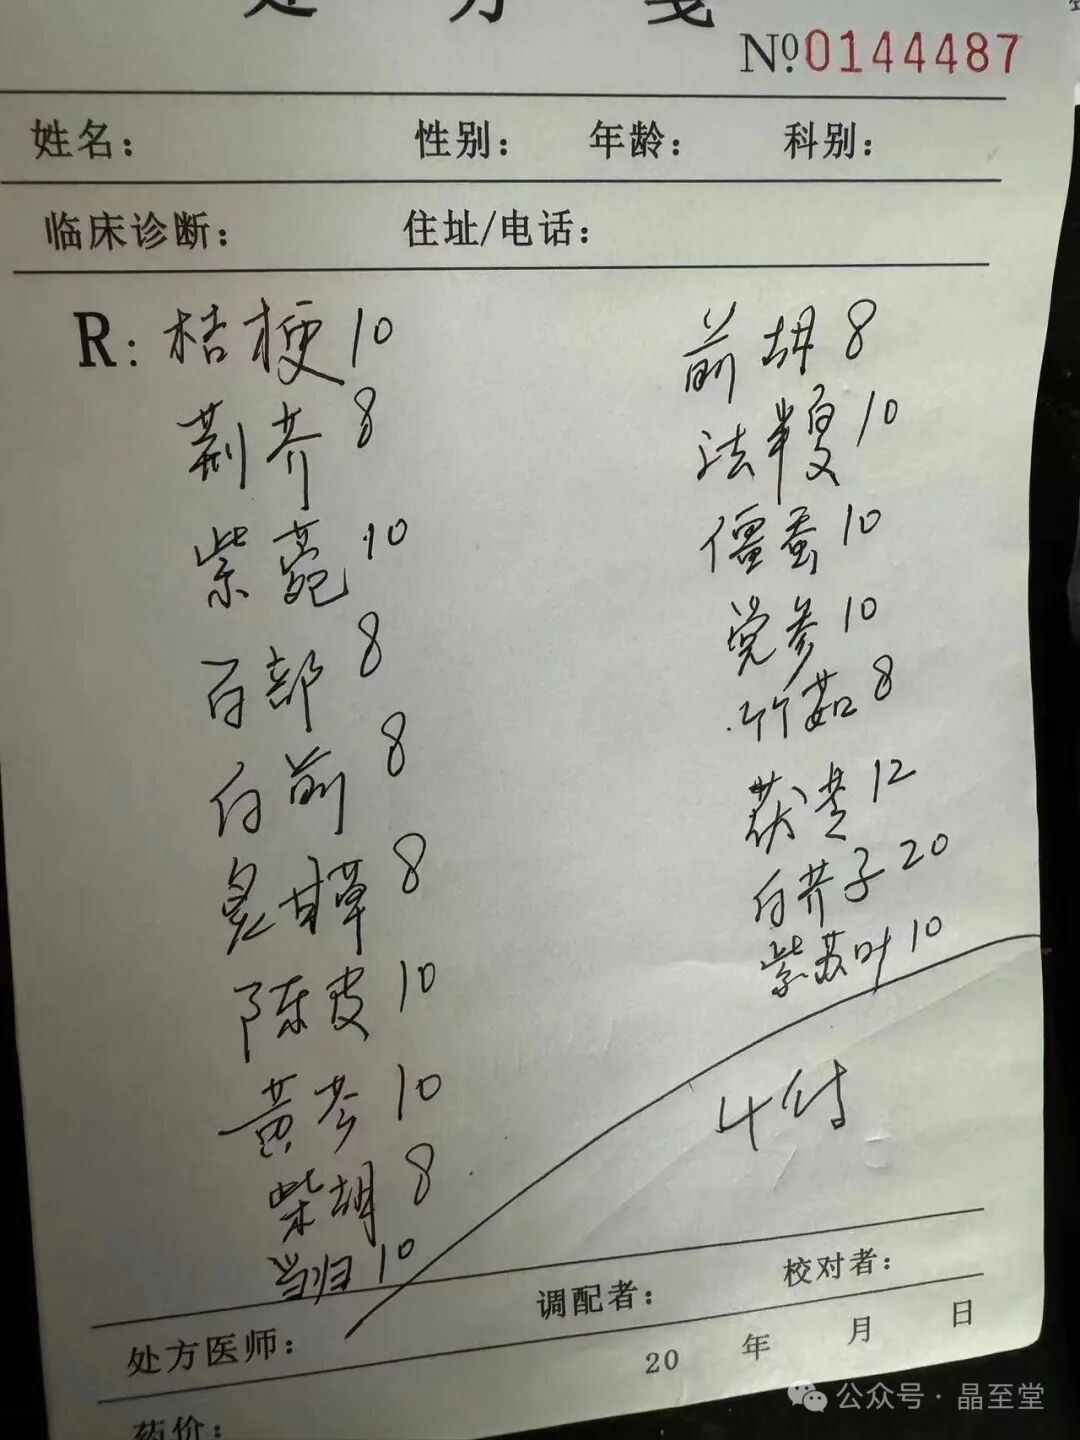 处方笺
№0144487
姓名： 性别： 年龄： 科别：
临床诊断： 住址/电话：
R: 桔梗10
荆芥8
紫菀10
百部8
白前8
炙甘草8
陈皮10
黄芩10
柴胡8
当归10
前胡8
法半夏10
僵蚕10
党参10
竹茹8
茯苓12
白芥子20
紫苏叶10
4付
处方医师： 调配者： 校对者：
20 年 月 日
药价：
公众号·晶至堂